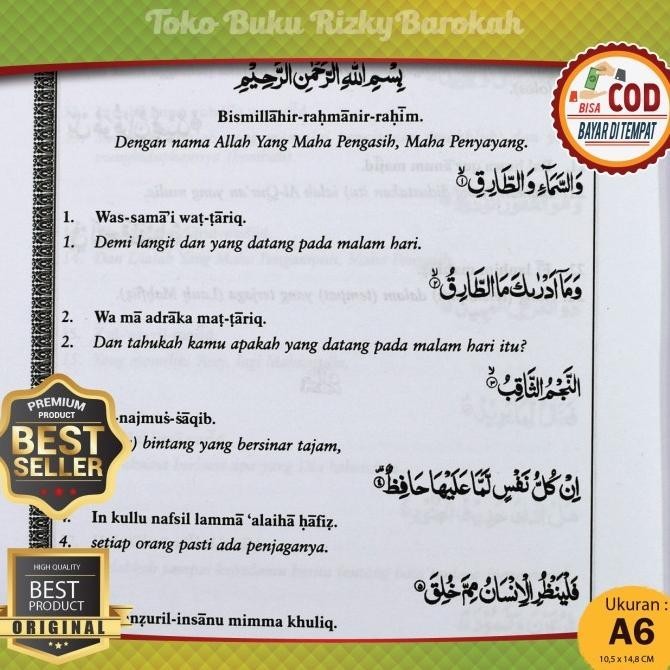 Toko Buku RizkyBarokah
BISA COD
BAYAR DI TEMPAT
بِسْمِ اللّٰهِ الرَّحْمٰنِ الرَّحِيْمِ
Bismillāhir-raḥmānir-raḥīm.
Dengan nama Allah Yang Maha Pengasih, Maha Penyayang.
وَالسَّمَاۤءِ وَالطَّارِقِۙ ١
1. Was-samā'i waṭ-ṭāriq.
1. Demi langit dan yang datang pada malam hari.
وَمَآ اَدْرٰىكَ مَا الطَّارِقُۙ ٢
2. Wa mā adrāka maṭ-ṭāriq.
2. Dan tahukah kamu apakah yang datang pada malam hari itu?
النَّجْمُ الثَّاقِبُۙ ٣
-najmuṡ-ṡāqib.
) bintang yang bersinar tajam,
اِنْ كُلُّ نَفْسٍ لَّمَّا عَلَيْهَا حَافِظٌۗ ٤
In kullu nafsil lammā ‘alaihā ḥāfiẓ.
4. setiap orang pasti ada penjaganya.
فَلْيَنْظُرِ الْاِنْسَانُ مِمَّ خُلِقَ ٥
nẓuril-insānu mimma khuliq.
PREMIUM
PRODUCT
BEST
SELLER
HIGH QUALITY
BEST
PRODUCT
ORIGINAL
Ukuran :
A6
10,5 x 14,8 CM